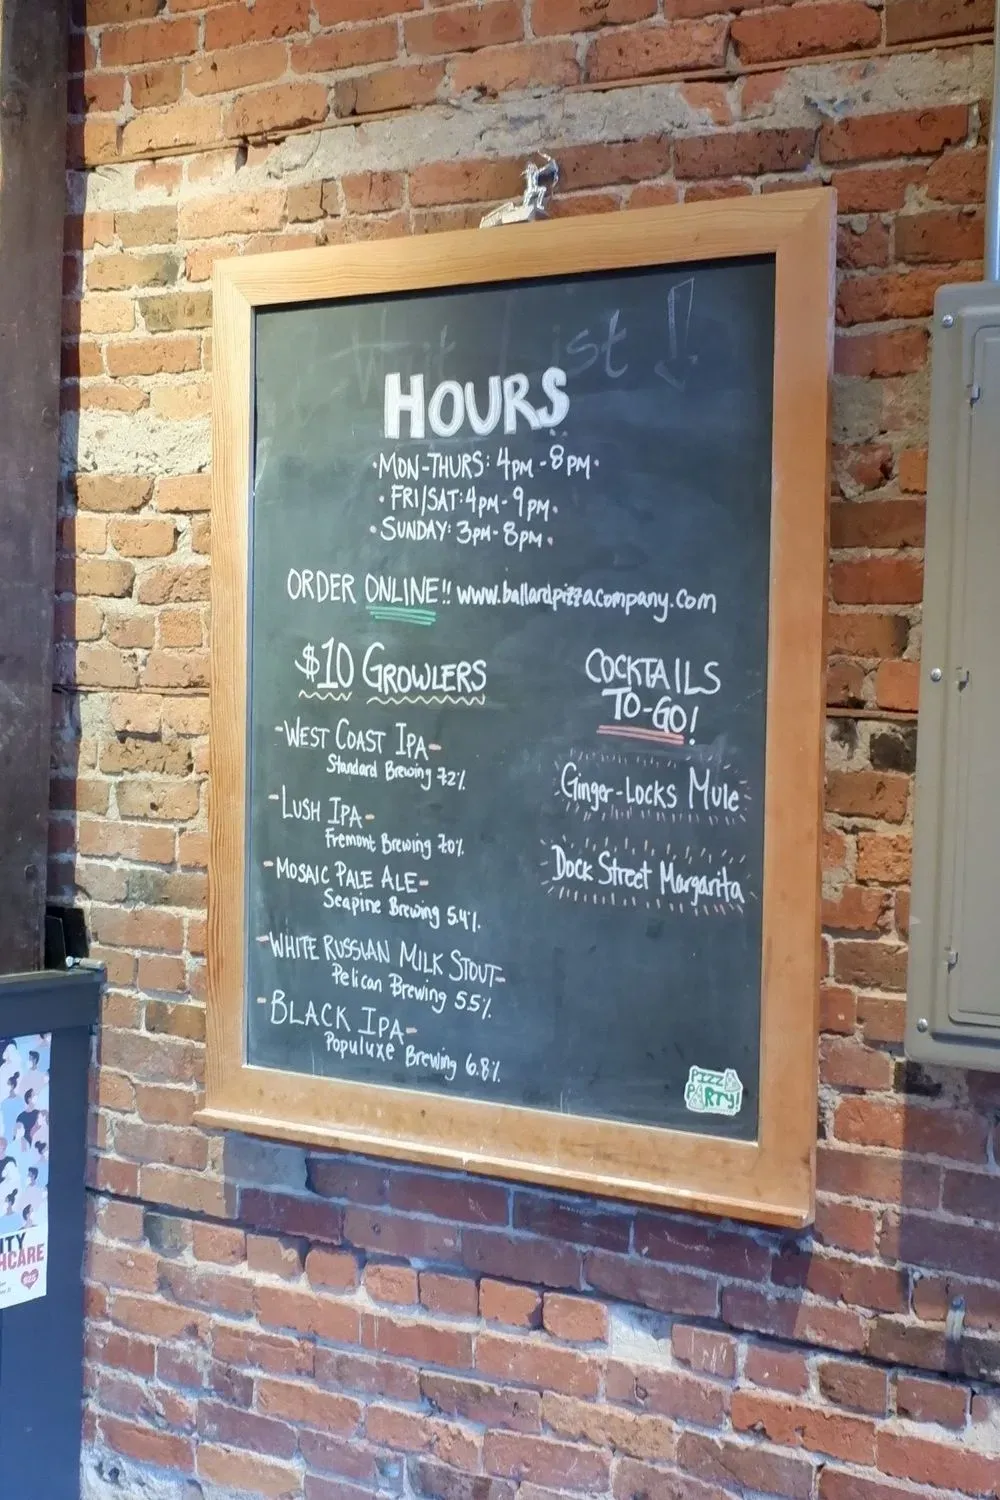 Wait List!
HOURS
·MON-THURS: 4PM-8PM·
·FRI/SAT: 4PM-9PM·
·SUNDAY: 3PM-8PM·
ORDER ONLINE!! www.ballardpizzacompany.com
$10 GROWLERS
-WEST COAST IPA-
Standard Brewing 7.2%
-LUSH IPA-
Fremont Brewing 7.0%
-MOSAIC PALE ALE-
Seapine Brewing 5.4%
-WHITE RUSSIAN MILK STOUT-
Pelican Brewing 5.5%
-BLACK IPA-
Populuxe Brewing 6.8%
COCKTAILS
TO-GO!
Ginger-Locks Mule
Dock Street Margarita
PIZZA
PARTY!
ITY
HCARE